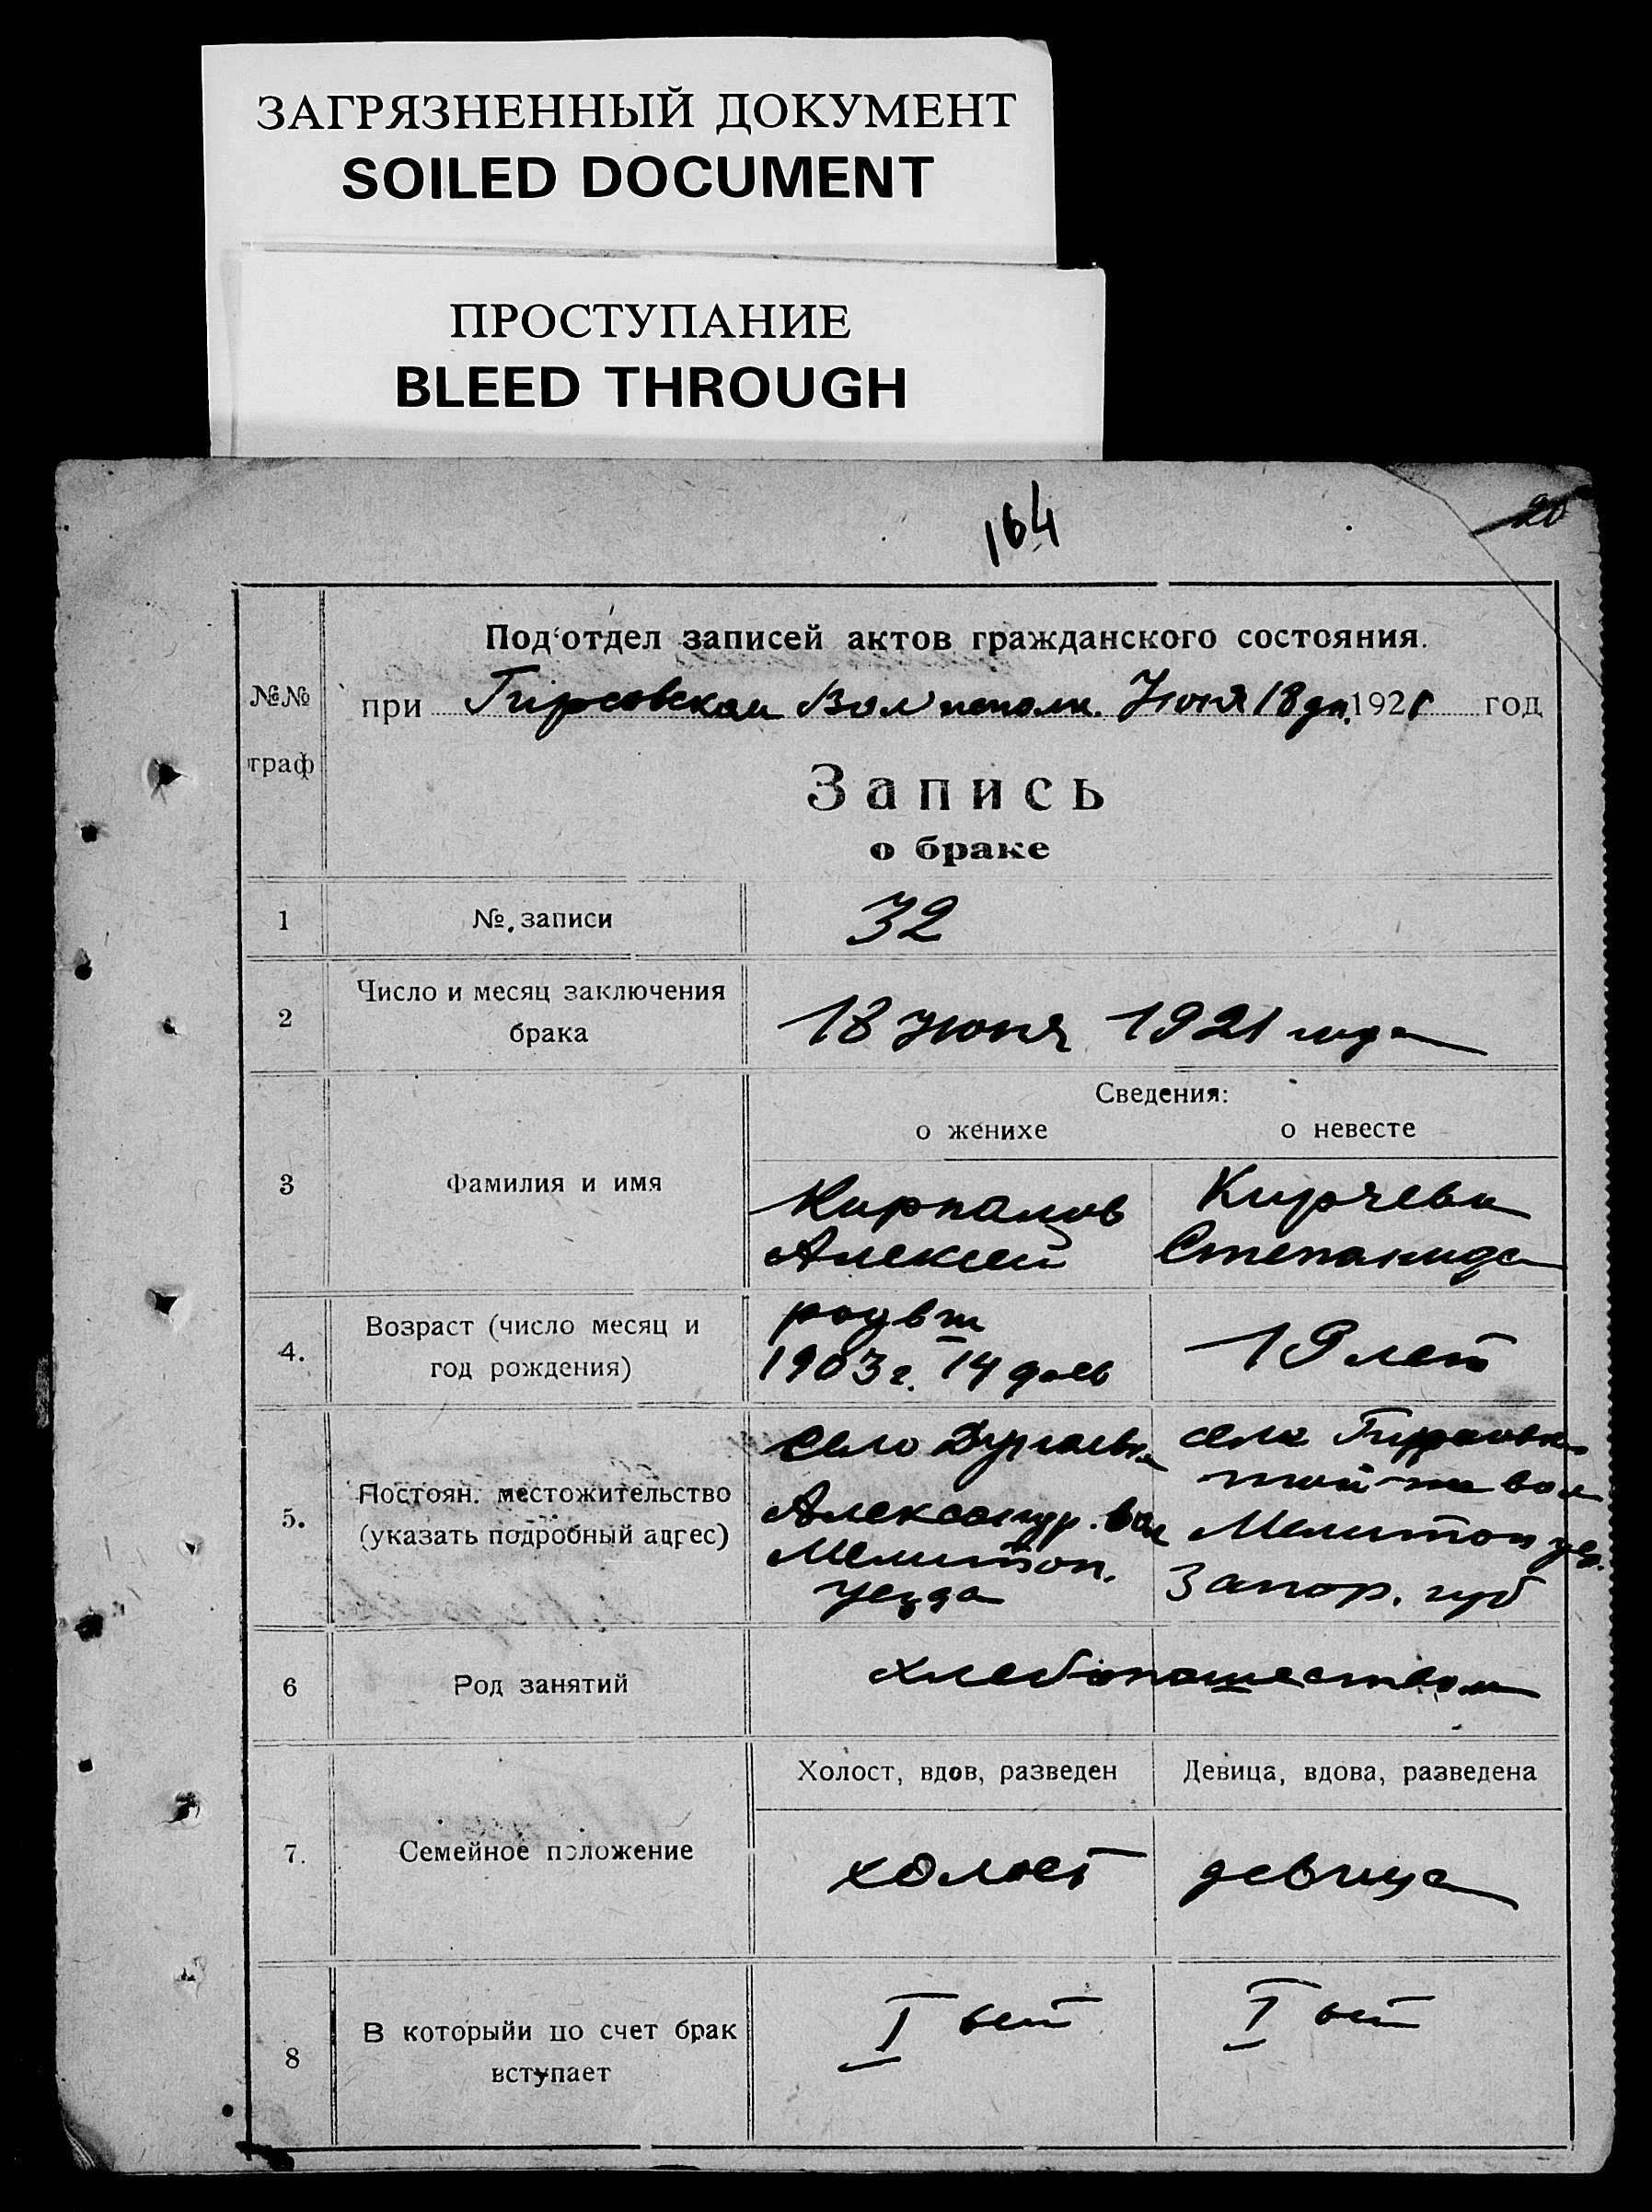 ЗАГРЯЗНЕННЫЙ ДОКУМЕНТ
SOILED DOCUMENT
ПРОСТУПАНИЕ
BLEED THROUGH
164
20
Под'отдел записей актов гражданского состояния.
№№ граф
при Гирсовском Вол исполк. Июня 18 дн. 1921 год
Запись
о браке
1 №. записи 32
2 Число и месяц заключения
брака
18 Июня 1921 года
Сведения:
о женихе о невесте
3 Фамилия и имя
Кирчева
Алексей Степанида
4. Возраст (число месяц и
год рождения)
1903 г. 14 19 лет
5. Постоян. местожительство
(указать подробный адрес)
Село села Гирсовка
той же вол
Александр. вол Мелитоп уез.
Мелитоп. Запор. губ
уезда
6 Род занятий хлебопашеством
Холост, вдов, разведен Девица, вдова, разведена
7. Семейное положение холост девица
8 В которыйи по счет брак
вступает
I ый I ый